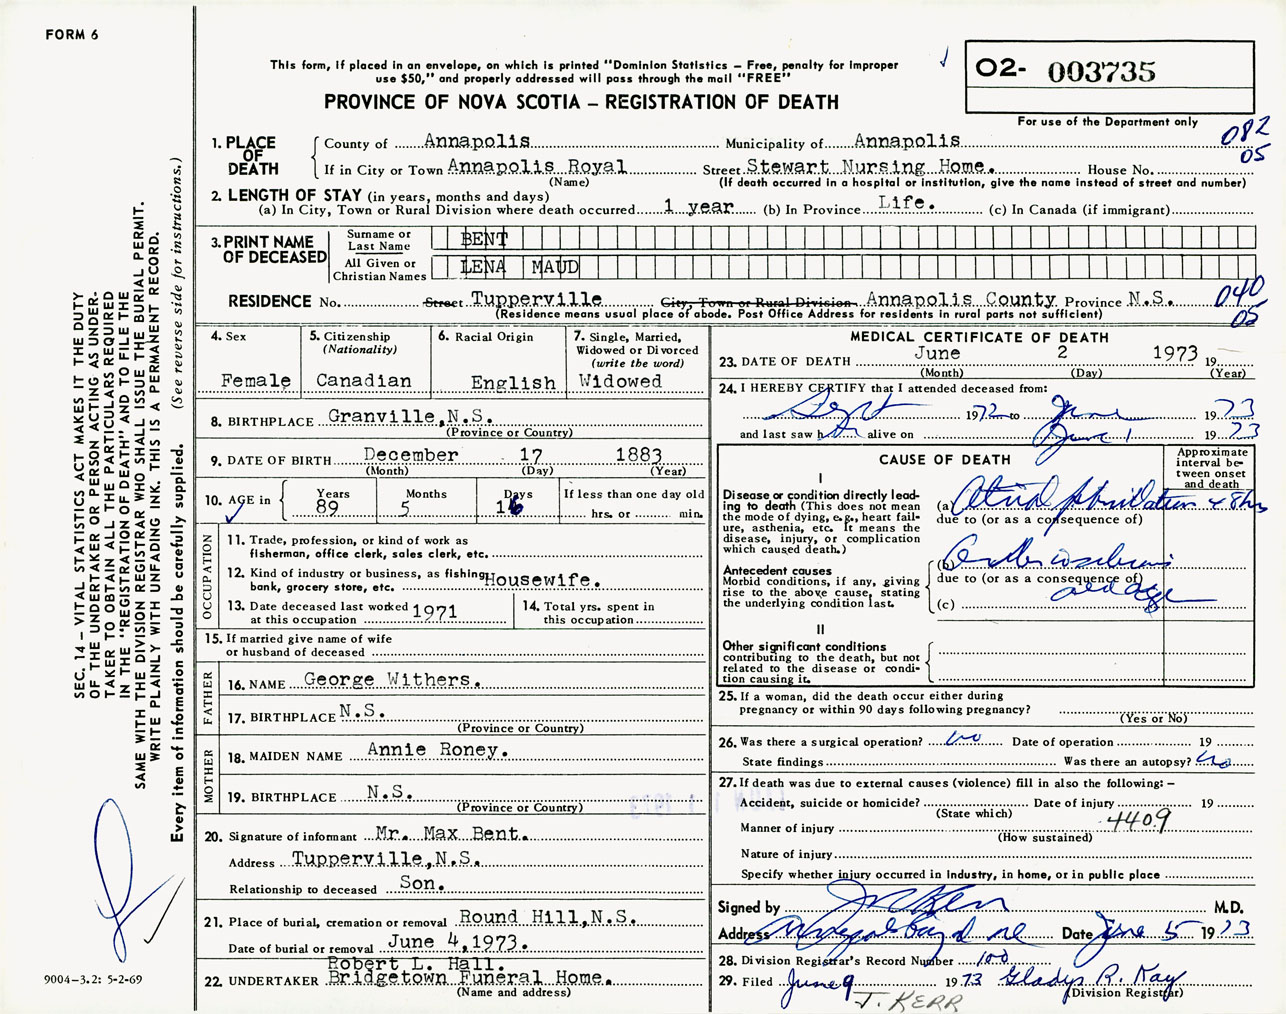 FORM 6
This form, if placed in an envelope, on which is printed "Dominion Statistics – Free, penalty for improper
use $50," and properly addressed will pass through the mail "FREE"
PROVINCE OF NOVA SCOTIA – REGISTRATION OF DEATH
02- 003735
For use of the Department only
082
05
1. PLACE OF DEATH
County of Annapolis Municipality of Annapolis
If in City or Town Annapolis Royal Street Stewart Nursing Home. House No.
(Name) (If death occurred in a hospital or institution, give the name instead of street and number)
2. LENGTH OF STAY (in years, months and days)
(a) In City, Town or Rural Division where death occurred 1 year (b) In Province Life. (c) In Canada (if immigrant)
3. PRINT NAME OF DECEASED
Surname or Last Name BENT
All Given or Christian Names LENA MAUD
RESIDENCE No. Street Tupperville City, Town or Rural Division Annapolis County Province N.S. 040
(Residence means usual place of abode. Post Office Address for residents in rural parts not sufficient) 05
4. Sex
Female
5. Citizenship
(Nationality)
Canadian
6. Racial Origin
English
7. Single, Married,
Widowed or Divorced
(write the word)
Widowed
8. BIRTHPLACE Granville,N.S.
(Province or Country)
9. DATE OF BIRTH December 17 1883
(Month) (Day) (Year)
10. AGE in
Years Months Days If less than one day old
89 5 16 hrs. or min.
OCCUPATION
11. Trade, profession, or kind of work as
fisherman, office clerk, sales clerk, etc.
12. Kind of industry or business, as fishing,
bank, grocery store, etc. Housewife.
13. Date deceased last worked
at this occupation 1971
14. Total yrs. spent in
this occupation
15. If married give name of wife
or husband of deceased
FATHER
16. NAME George Withers.
17. BIRTHPLACE N.S.
(Province or Country)
MOTHER
18. MAIDEN NAME Annie Roney.
19. BIRTHPLACE N.S.
(Province or Country)
20. Signature of informant Mr. Max Bent.
Address Tupperville,N.S.
Relationship to deceased Son.
21. Place of burial, cremation or removal Round Hill,N.S.
Date of burial or removal June 4,1973.
Robert L. Hall.
22. UNDERTAKER Bridgetown Funeral Home.
(Name and address)
MEDICAL CERTIFICATE OF DEATH
23. DATE OF DEATH June 2 1973 19
(Month) (Day) (Year)
24. I HEREBY CERTIFY that I attended deceased from:
Sept 1972 to June 1973
and last saw her alive on June 1 1973
CAUSE OF DEATH
Approximate
interval be-
tween onset
and death
I
Disease or condition directly lead-
ing to death (This does not mean
the mode of dying, e.g., heart fail-
ure, asthenia, etc. It means the
disease, injury, or complication
which caused death.)
(a) Atrial fibrillation 48 hrs
due to (or as a consequence of)
Antecedent causes
Morbid conditions, if any, giving
rise to the above cause, stating
the underlying condition last.
(b)
due to (or as a consequence of)
(c) old age
II
Other significant conditions
contributing to the death, but not
related to the disease or condi-
tion causing it.
25. If a woman, did the death occur either during
pregnancy or within 90 days following pregnancy?
(Yes or No)
26. Was there a surgical operation? no Date of operation 19
State findings Was there an autopsy? no
27. If death was due to external causes (violence) fill in also the following: –
Accident, suicide or homicide? Date of injury 19
(State which)
Manner of injury 4409
(How sustained)
Nature of injury
Specify whether injury occurred in industry, in home, or in public place
Signed by M.D.
Address Date June 5 1973
28. Division Registrar's Record Number 100
29. Filed June 9 1973 Gladys R. Kay
(Division Registrar)
J. KERR
SEC. 14 – VITAL STATISTICS ACT MAKES IT THE DUTY
OF THE UNDERTAKER OR PERSON ACTING AS UNDER-
TAKER TO OBTAIN ALL THE PARTICULARS REQUIRED
IN THE "REGISTRATION OF DEATH" AND TO FILE THE
SAME WITH THE DIVISION REGISTRAR WHO SHALL ISSUE THE BURIAL PERMIT.
WRITE PLAINLY WITH UNFADING INK. THIS IS A PERMANENT RECORD.
Every item of information should be carefully supplied. (See reverse side for instructions.)
9004-3.2: 5-2-69